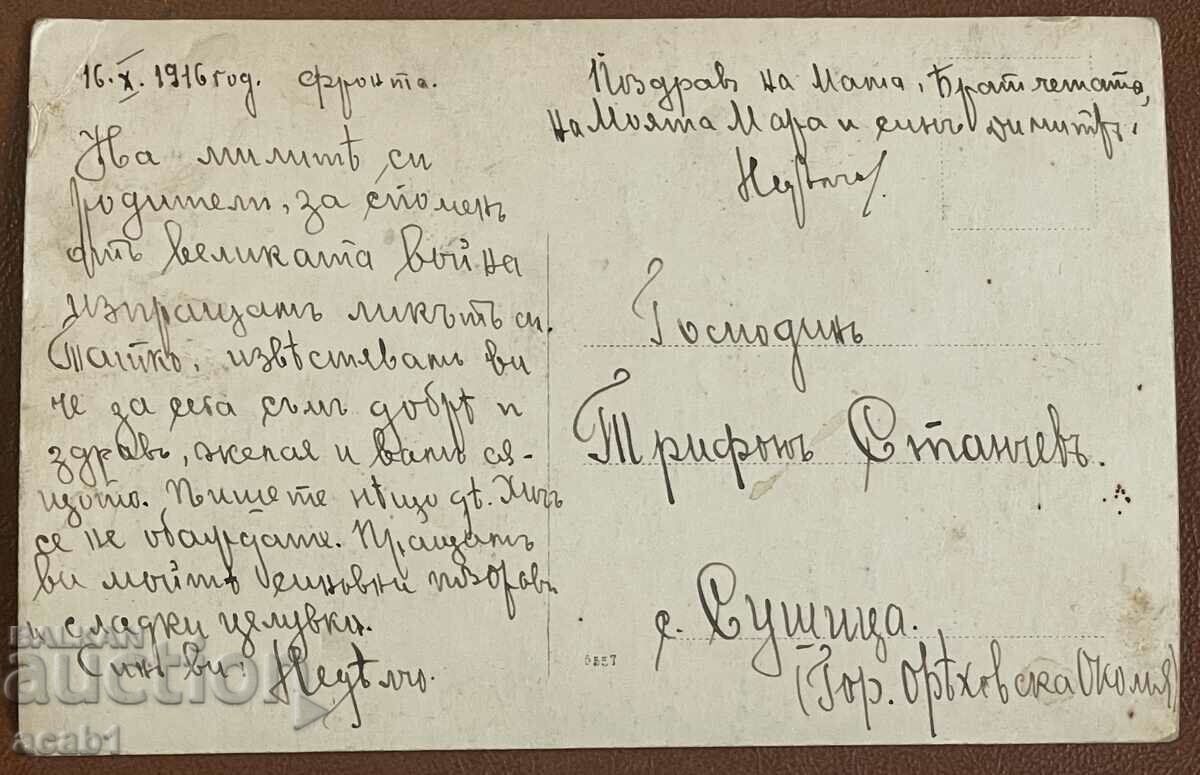 16.X.1916 год. фронта.
На милитѣ си
родители, за споменъ
отъ великата война
изпращатъ ликътъ си.
Тайко, извѣстявать ви
че за сега съмъ добрѣ и
здравъ, желая и вамъ ся-
щото. Пишете нѣщо дѣ. Хичъ
се не обаждате. Пращатъ
ви мойтѣ синовни поздрави
и сладки целувки.
Синъ ви: Недѣлчо.
Поздравъ на Мама, Братчетата,
на Моята Мара и синъ Димитръ.
Недѣлчо
Господинъ
Трифонъ Станчевъ.
с. Сушица.
(Гор. Орѣховска Околия)
0557
BALKAN
auction
acab1